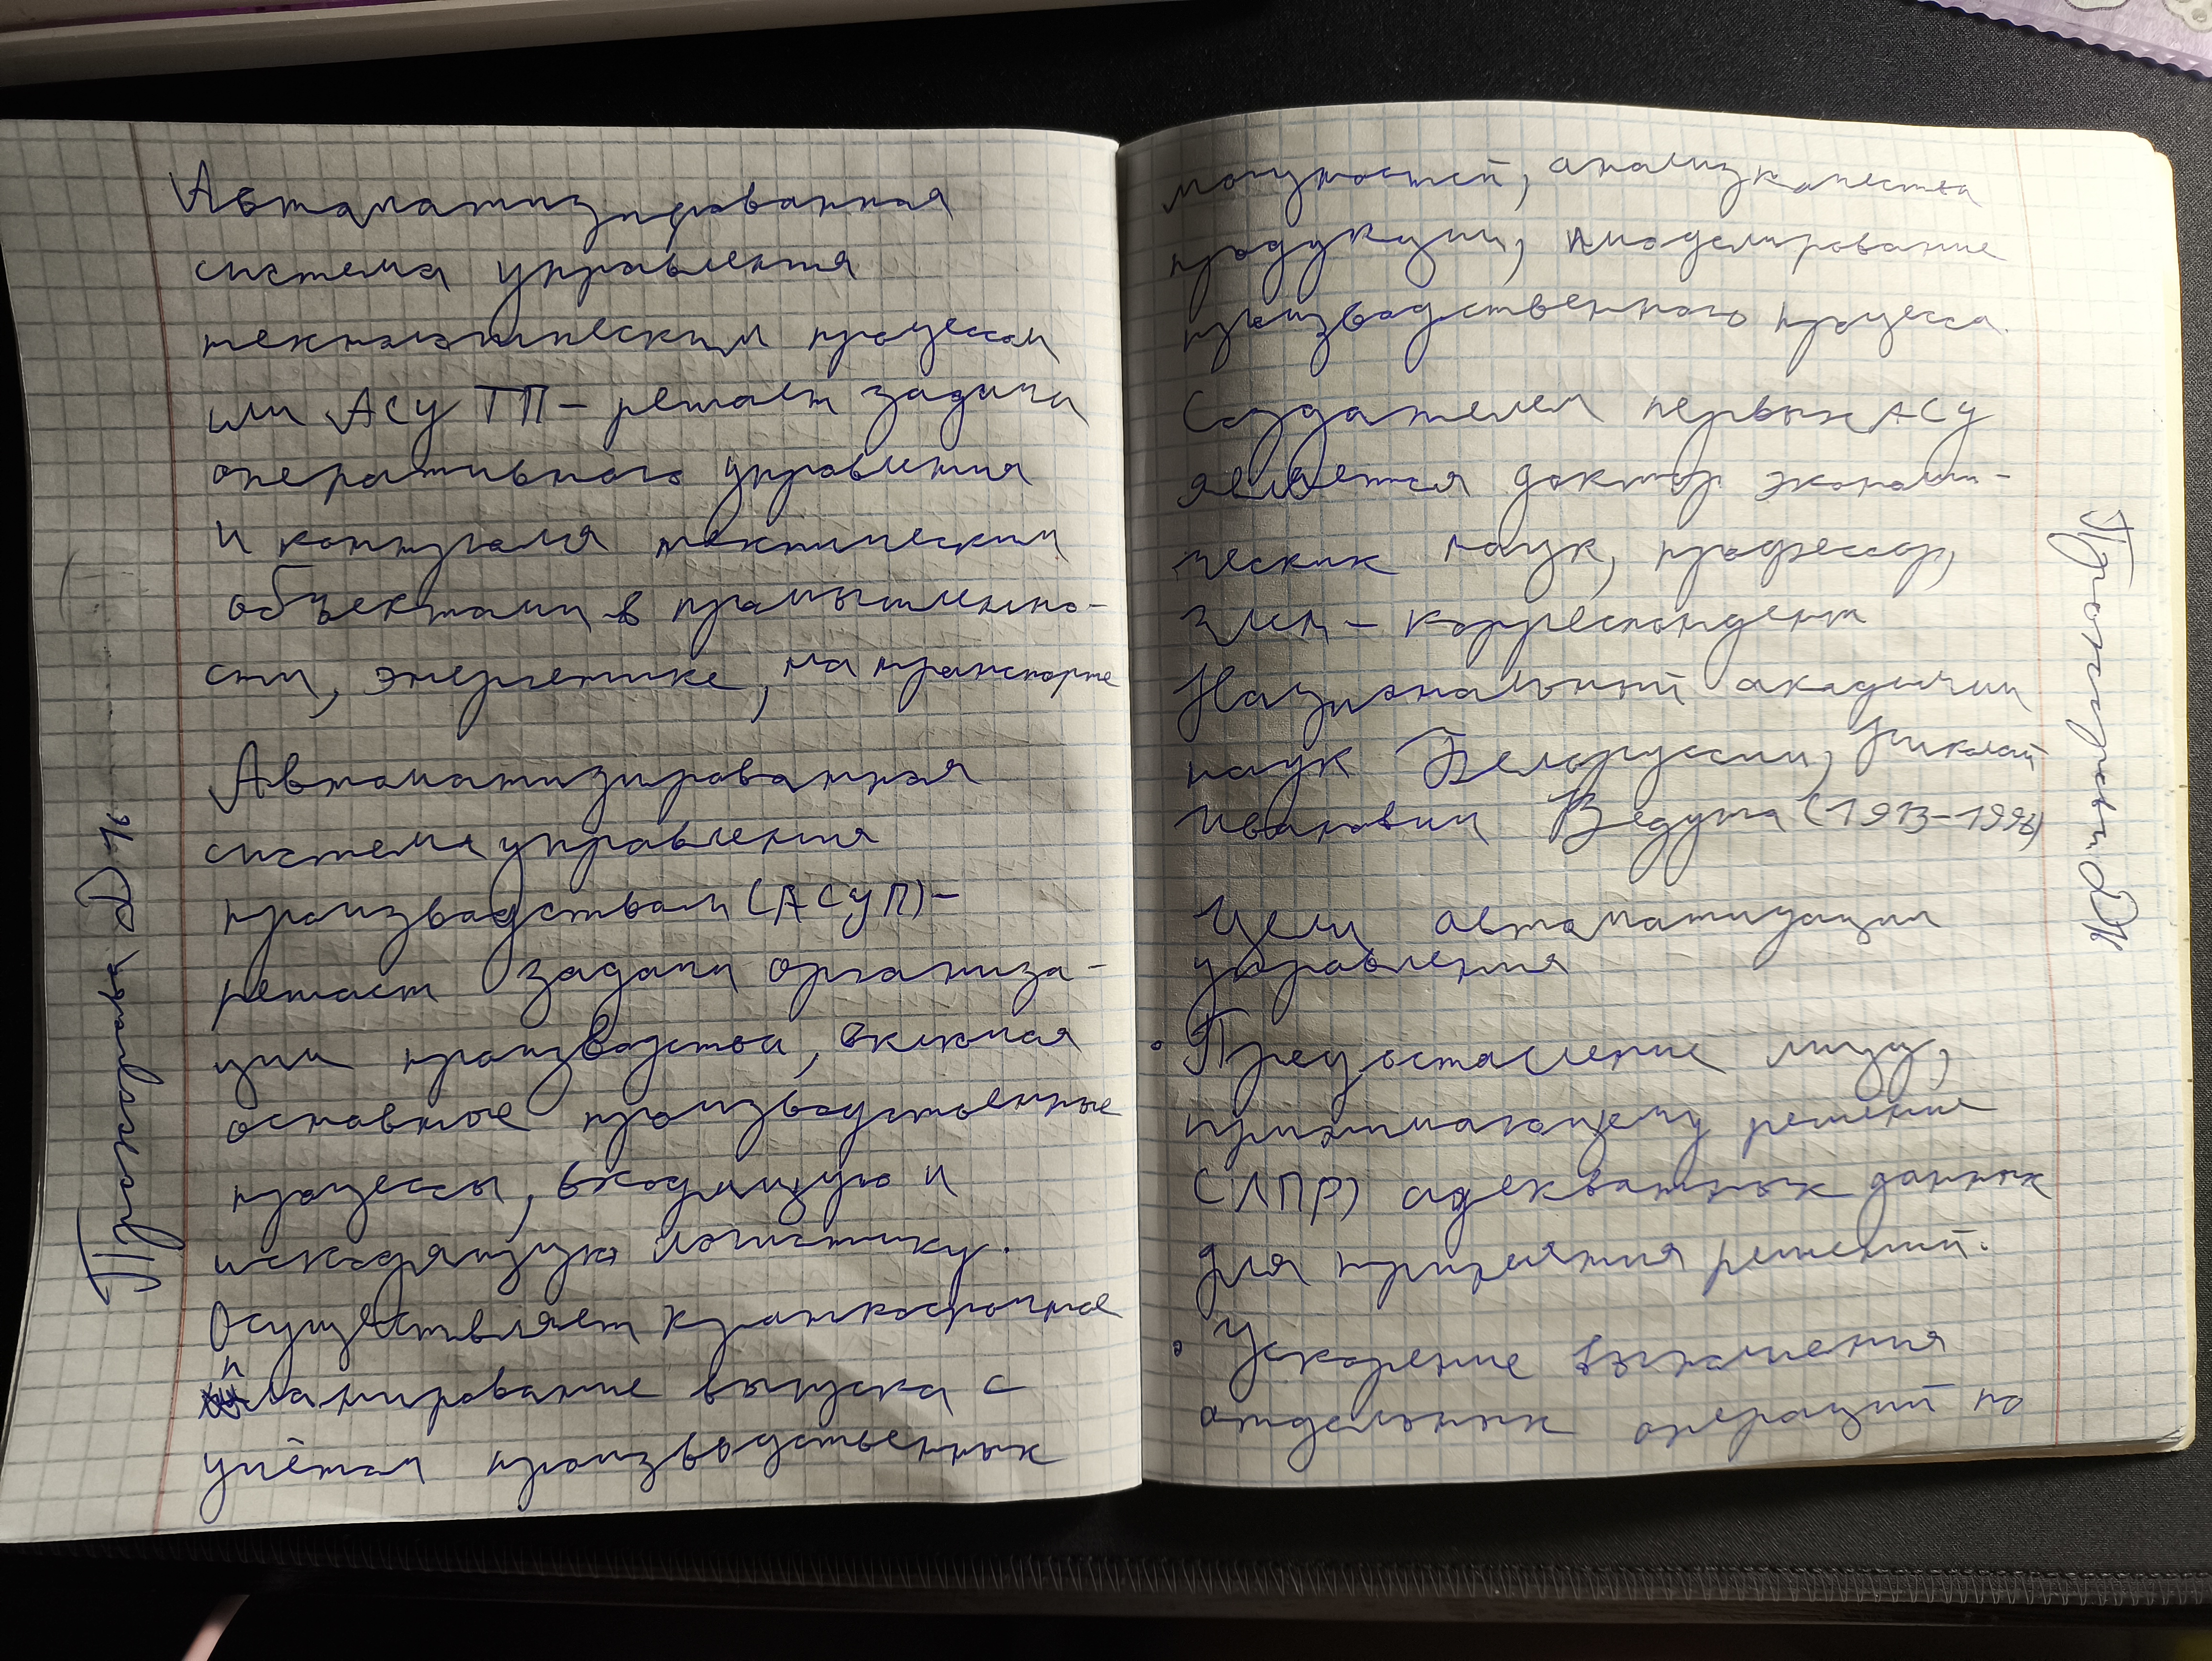 Автоматизированная
система управления
технологическим процессом
или АСУ ТП – решает задачи
оперативного управления
и контроля техническими
объектами в промышленно-
сти, энергетике, на транспорте
Автоматизированная
система управления
производством (АСУП) –
решает задачи организа-
ции производства, включая
основные производственные
процессы, входящую и
исходящую логистику.
Осуществляет краткосрочное
планирование выпуска с
учётом производственных
мощностей, анализ качества
продукции, моделирование
производственного процесса.
Создателем первых АСУ
является доктор экономи-
ческих наук, профессор,
член – корреспондент
Национальной академии
наук Белоруссии, Николай
Иванович Ведута (1913–1998)
Цели автоматизации
управления
• Предоставление лицу,
принимающему решение
(ЛПР) адекватных данных
для принятия решений.
• Ускорение выполнения
отдельных операций по